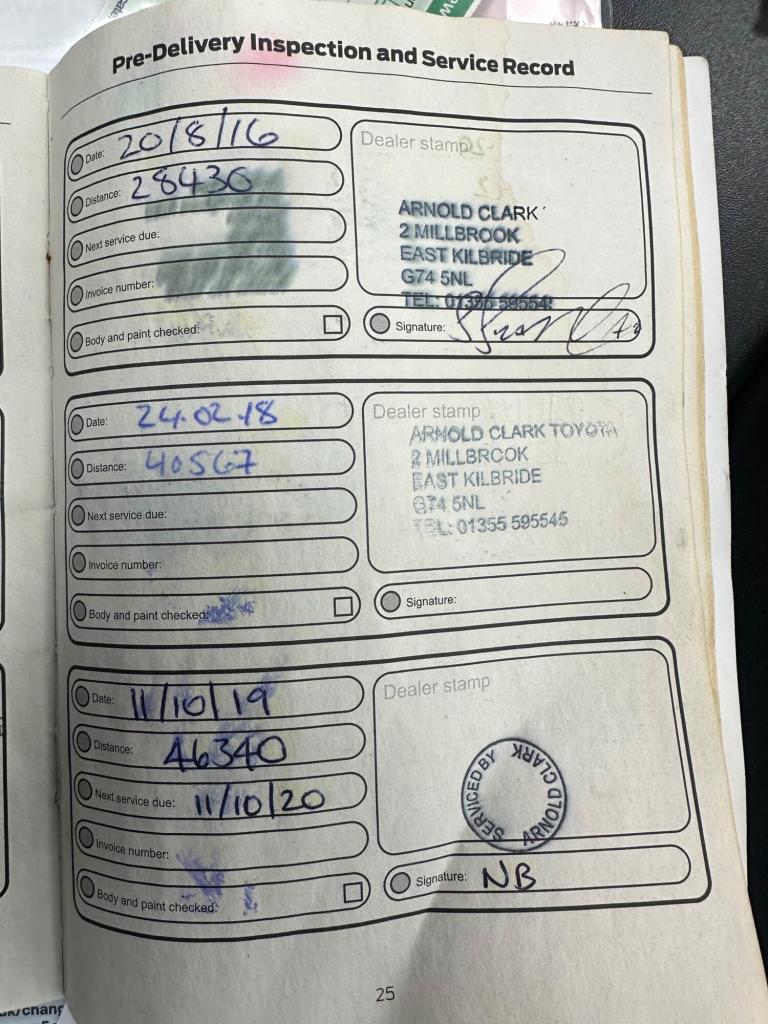 Pre-Delivery Inspection and Service Record
Date: 20/8/16
Distance: 28430
Next service due:
Invoice number:
Body and paint checked:
Dealer stamp
ARNOLD CLARK
2 MILLBROOK
EAST KILBRIDE
G74 5NL
TEL: 01355 59554
Signature:
Date: 24.02.18
Distance: 40567
Next service due:
Invoice number:
Body and paint checked:
Dealer stamp
ARNOLD CLARK TOYOTA
2 MILLBROOK
EAST KILBRIDE
G74 5NL
TEL: 01355 595545
Signature:
Date: 11/10/19
Distance: 46340
Next service due: 11/10/20
Invoice number:
Body and paint checked:
Dealer stamp
SERVICED BY
ARNOLD CLARK
Signature: NB
25